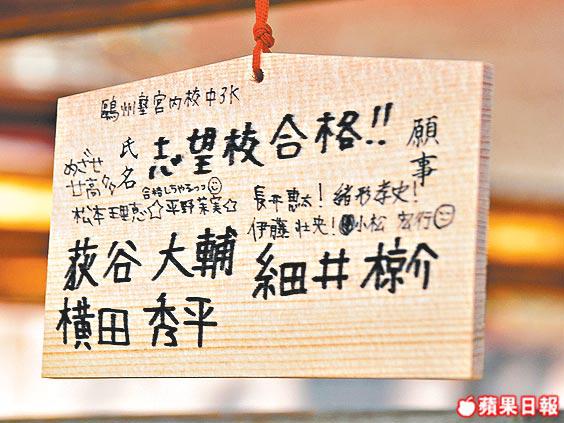 鷗州塾宮内校中3K
願事
志望校合格!!
氏名
めざせ
廿高多
合格しちゃるっつ
松本理恵☆平野茉実☆
長井恵太!緒形孝史!
伊藤壮央!小松宏行
荻谷大輔
細井椋介
横田秀平
蘋果日報